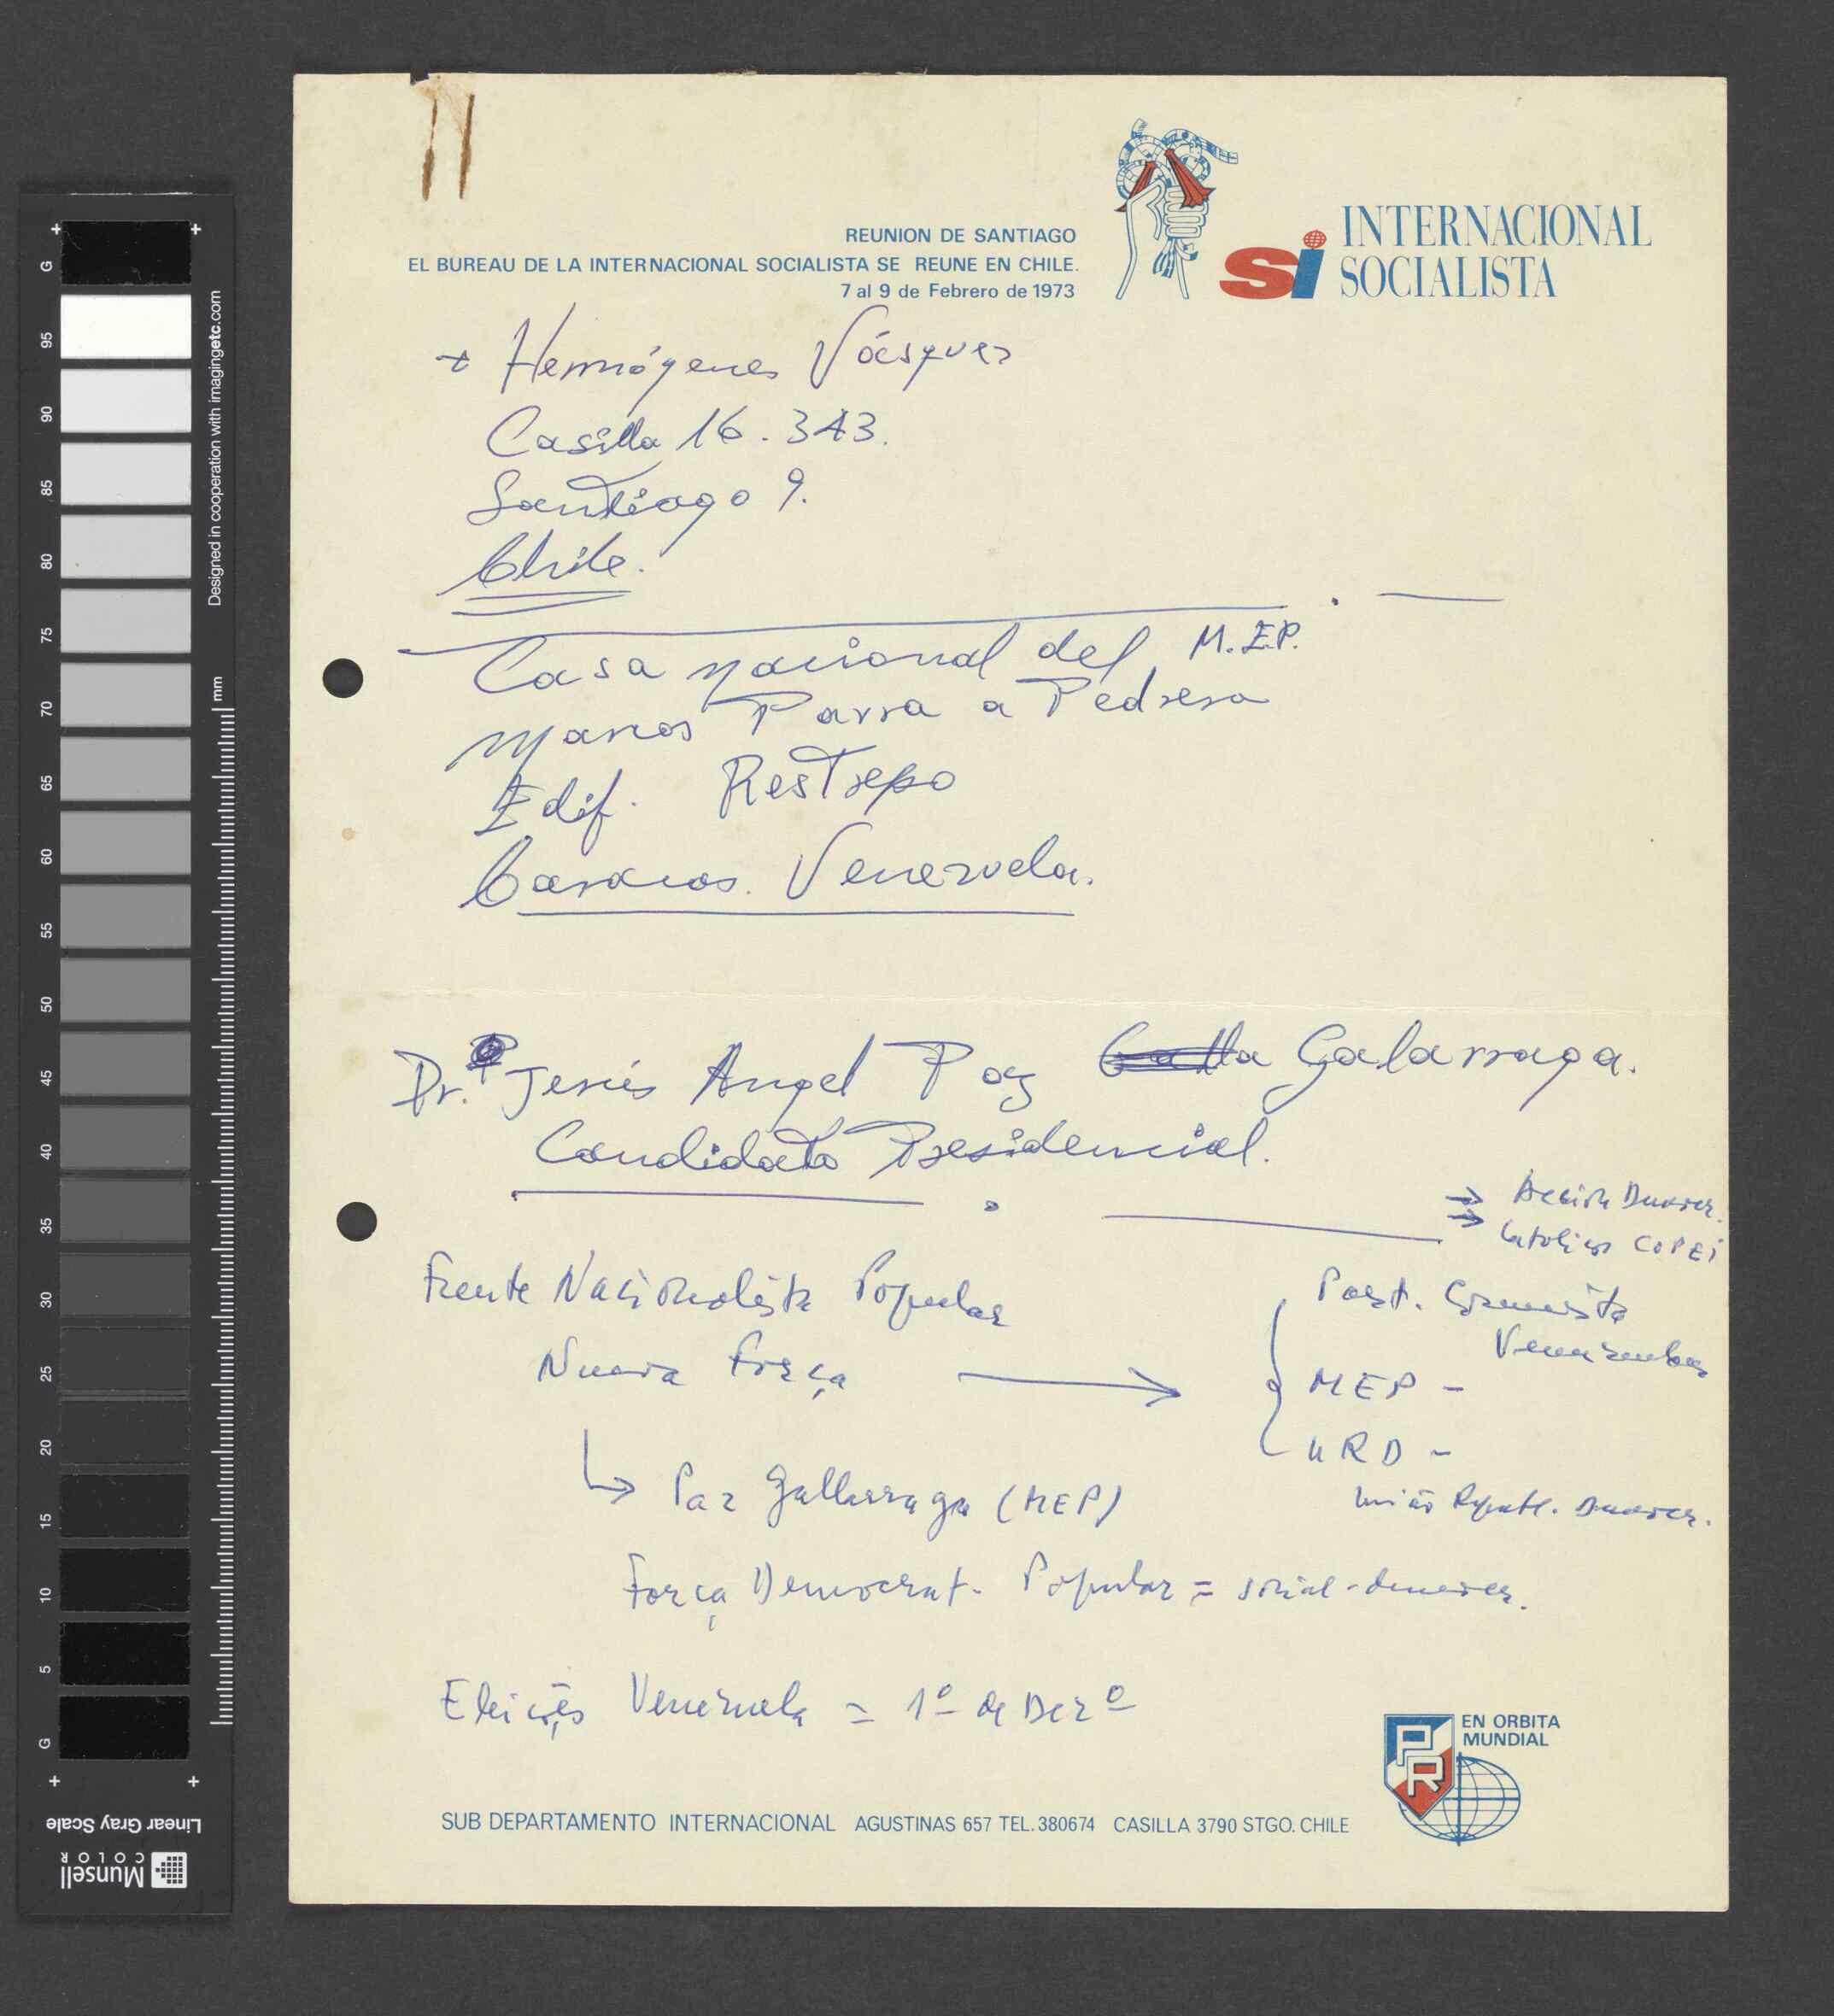 REUNION DE SANTIAGO
EL BUREAU DE LA INTERNACIONAL SOCIALISTA SE REUNE EN CHILE.
7 al 9 de Febrero de 1973
si INTERNACIONAL
SOCIALISTA
Hermógenes Vásquez
Casilla 16.343.
Santiago 9.
Chile.
Casa nacional del M.E.P.
Parra a
Edif. Restrepo
Caracas. Venezuela.
Dr. Jesús Angel Paz Galarraga.
Candidato Presidencial.
→ Acción Democr.
→ Católicos COPEI
Frente Nacionalista Popular
Part. Comunista
Nueva Força →
MEP -
URD -
↳ Paz Gallarraga (MEP)
União Republ. Democr.
Força Democrat. Popular = social-democr.
Eleições Venezuela = 1º de Dezº
PR EN ORBITA
MUNDIAL
SUB DEPARTAMENTO INTERNACIONAL AGUSTINAS 657 TEL. 380674 CASILLA 3790 STGO. CHILE
G 95 90 85 80 75 70 65 60 55 50 45 40 35 30 25 20 15 10 5 G
mm
Designed in cooperation with imagingetc.com
Munsell
COLOR
Linear Gray Scale